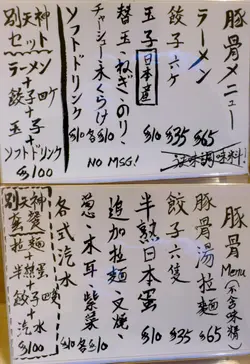 豚骨メニュー
ラーメン $65
餃子 六ケ $35
玉子 日本産 $10
替玉・ねぎ・のり、
チャーシュー・木くらげ 各$10
ソフトドリンク $10
NO MSG!
別天神
セット
ラーメン
+
餃子 四ケ
+
玉子
+
ソフトドリンク
$100
豚骨 Menu (不含味精)
豚骨湯拉麵 $65
餃子 六隻 $35
半熟日本蛋 $10
追加拉麵、叉燒、
葱、木耳、紫菜 各$10
各式汽水 $10
別天神
拉麵
+
半熟蛋
+
餃子四隻
+
汽水
$100